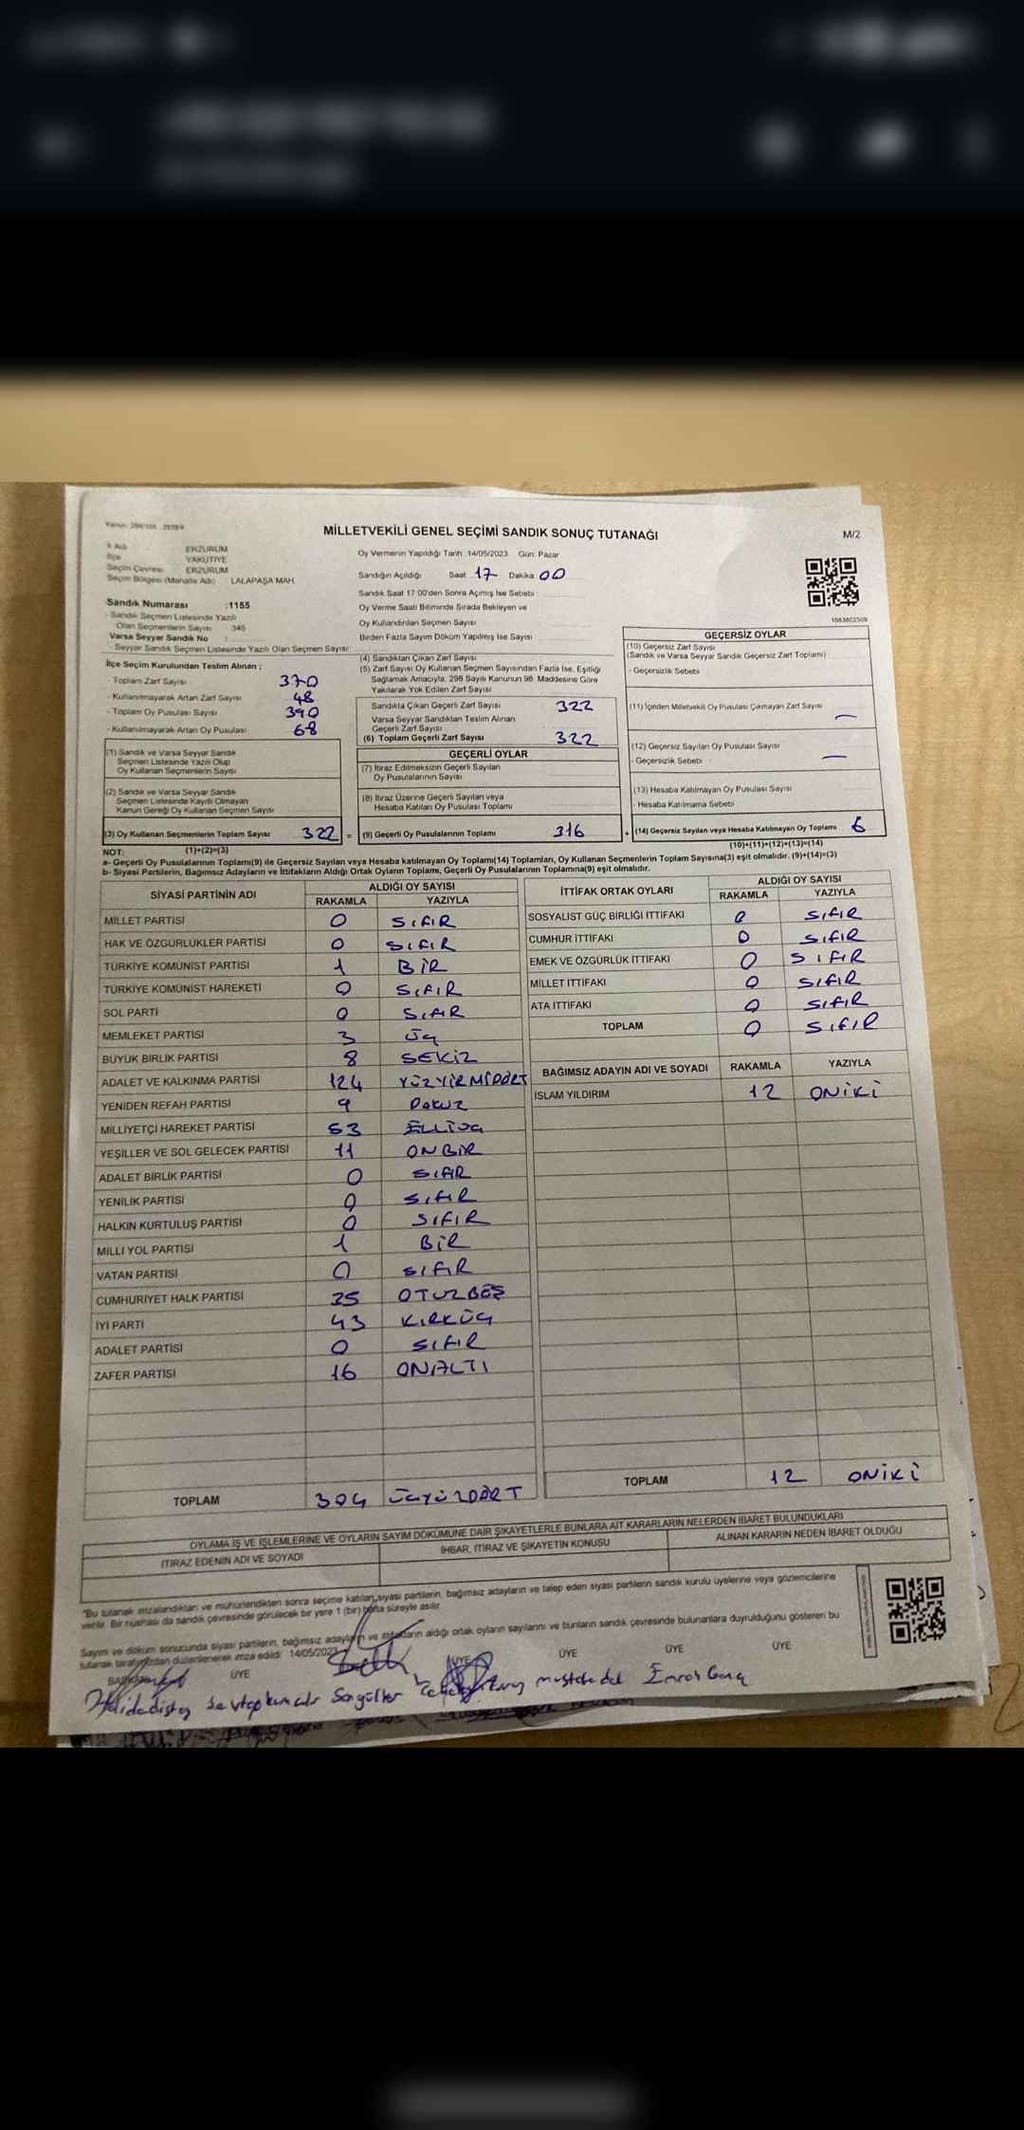 MİLLETVEKİLİ GENEL SEÇİMİ SANDIK SONUÇ TUTANAĞI
M/2
İl Adı ERZURUM
İlçe YAKUTİYE
Seçim Çevresi ERZURUM
Seçim Bölgesi (Mahalle Adı) LALAPAŞA MAH.
Sandık Numarası :1155
- Sandık Seçmen Listesinde Yazılı
Olan Seçmenlerin Sayısı 345
Varsa Seyyar Sandık No :
Seyyar Sandık Seçmen Listesinde Yazılı Olan Seçmen Sayısı
Oy Vermenin Yapıldığı Tarih :14/05/2023 Gün: Pazar
Sandığın Açıldığı Saat 17 Dakika 00
Sandık Saat 17:00'den Sonra Açılmış İse Sebebi
Oy Verme Saati Bitiminde Sırada Bekleyen ve
Oy Kullandırılan Seçmen Sayısı
Birden Fazla Sayım Döküm Yapılmış İse Sayısı
İlçe Seçim Kurulundan Teslim Alınan ;
- Toplam Zarf Sayısı 370
- Kullanılmayarak Artan Zarf Sayısı 48
- Toplam Oy Pusulası Sayısı 390
- Kullanılmayarak Artan Oy Pusulası 68
(1) Sandık ve Varsa Seyyar Sandık
Seçmen Listesinde Yazılı Olup
Oy Kullanan Seçmenlerin Sayısı
(2) Sandık ve Varsa Seyyar Sandık
Seçmen Listesinde Kayıtlı Olmayan
Kanun Gereği Oy Kullanan Seçmen Sayısı
(3) Oy Kullanan Seçmenlerin Toplam Sayısı 322 =
(1)+(2)=(3)
(4) Sandıktan Çıkan Zarf Sayısı
(5) Zarf Sayısı Oy Kullanan Seçmen Sayısından Fazla İse, Eşitliği
Sağlamak Amacıyla, 298 Sayılı Kanunun 98. Maddesine Göre
Yakılarak Yok Edilen Zarf Sayısı
Sandıkta Çıkan Geçerli Zarf Sayısı 322
Varsa Seyyar Sandıktan Teslim Alınan
Geçerli Zarf Sayısı
(6) Toplam Geçerli Zarf Sayısı 322
GEÇERLİ OYLAR
(7) İtiraz Edilmeksizin Geçerli Sayılan
Oy Pusulalarının Sayısı
(8) İtiraz Üzerine Geçerli Sayılan veya
Hesaba Katılan Oy Pusulası Toplamı
(9) Geçerli Oy Pusulalarının Toplamı 316 +
GEÇERSİZ OYLAR
(10) Geçersiz Zarf Sayısı
(Sandık ve Varsa Seyyar Sandık Geçersiz Zarf Toplamı)
- Geçersizlik Sebebi
(11) İçinden Milletvekili Oy Pusulası Çıkmayan Zarf Sayısı —
(12) Geçersiz Sayılan Oy Pusulası Sayısı
- Geçersizlik Sebebi —
(13) Hesaba Katılmayan Oy Pusulası Sayısı
- Hesaba Katılmama Sebebi
(14) Geçersiz Sayılan veya Hesaba Katılmayan Oy Toplamı 6
(10)+(11)+(12)+(13)=(14)
NOT:
a- Geçerli Oy Pusulalarının Toplamı(9) ile Geçersiz Sayılan veya Hesaba katılmayan Oy Toplamı(14) Toplamları, Oy Kullanan Seçmenlerin Toplam Sayısına(3) eşit olmalıdır. (9)+(14)=(3)
b- Siyasi Partilerin, Bağımsız Adayların ve İttifakların Aldığı Ortak Oyların Toplamı, Geçerli Oy Pusulalarının Toplamına(9) eşit olmalıdır.
SİYASİ PARTİNİN ADI ALDIĞI OY SAYISI
RAKAMLA YAZIYLA
MİLLET PARTİSİ 0 SIFIR
HAK VE ÖZGÜRLÜKLER PARTİSİ 0 SIFIR
TÜRKİYE KOMÜNİST PARTİSİ 1 BİR
TÜRKİYE KOMÜNİST HAREKETİ 0 SIFIR
SOL PARTİ 0 SIFIR
MEMLEKET PARTİSİ 3 ÜÇ
BÜYÜK BİRLİK PARTİSİ 8 SEKİZ
ADALET VE KALKINMA PARTİSİ 124 YÜZYİRMİDÖRT
YENİDEN REFAH PARTİSİ 9 DOKUZ
MİLLİYETÇİ HAREKET PARTİSİ 53 ELLİÜÇ
YEŞİLLER VE SOL GELECEK PARTİSİ 11 ONBİR
ADALET BİRLİK PARTİSİ 0 SIFIR
YENİLİK PARTİSİ 0 SIFIR
HALKIN KURTULUŞ PARTİSİ 0 SIFIR
MİLLİ YOL PARTİSİ 1 BİR
VATAN PARTİSİ 0 SIFIR
CUMHURİYET HALK PARTİSİ 35 OTUZBEŞ
İYİ PARTİ 43 KIRKÜÇ
ADALET PARTİSİ 0 SIFIR
ZAFER PARTİSİ 16 ONALTI
TOPLAM 304 ÜÇYÜZDÖRT
İTTİFAK ORTAK OYLARI ALDIĞI OY SAYISI
RAKAMLA YAZIYLA
SOSYALİST GÜÇ BİRLİĞİ İTTİFAKI 0 SIFIR
CUMHUR İTTİFAKI 0 SIFIR
EMEK VE ÖZGÜRLÜK İTTİFAKI 0 SIFIR
MİLLET İTTİFAKI 0 SIFIR
ATA İTTİFAKI 0 SIFIR
TOPLAM 0 SIFIR
BAĞIMSIZ ADAYIN ADI VE SOYADI RAKAMLA YAZIYLA
İSLAM YILDIRIM 12 ONİKİ
TOPLAM 12 ONİKİ
OYLAMA İŞ VE İŞLEMLERİNE VE OYLARIN SAYIM DÖKÜMÜNE DAİR ŞİKAYETLERLE BUNLARA AİT KARARLARIN NELERDEN İBARET BULUNDUKLARI
İTİRAZ EDENİN ADI VE SOYADI İHBAR, İTİRAZ VE ŞİKAYETİN KONUSU ALINAN KARARIN NEDEN İBARET OLDUĞU
"Bu tutanak imzalandıktan ve mühürlendikten sonra seçime katılan siyasi partilerin, bağımsız adayların ve talep eden siyasi partilerin sandık kurulu üyelerine veya gözlemcilerine
verilir. Bir nüshası da sandık çevresinde görülecek bir yere 1 (bir) hafta süreyle asılır.
Sayım ve döküm sonucunda siyasi partilerin, bağımsız adayların ve ittifakların aldığı ortak oyların sayılarını ve bunların sandık çevresinde bulunanlara duyurulduğunu gösteren bu
tutanak tarafımızdan düzenlenerek imza edildi. 14/05/2023
BAŞKAN ÜYE ÜYE ÜYE ÜYE ÜYE